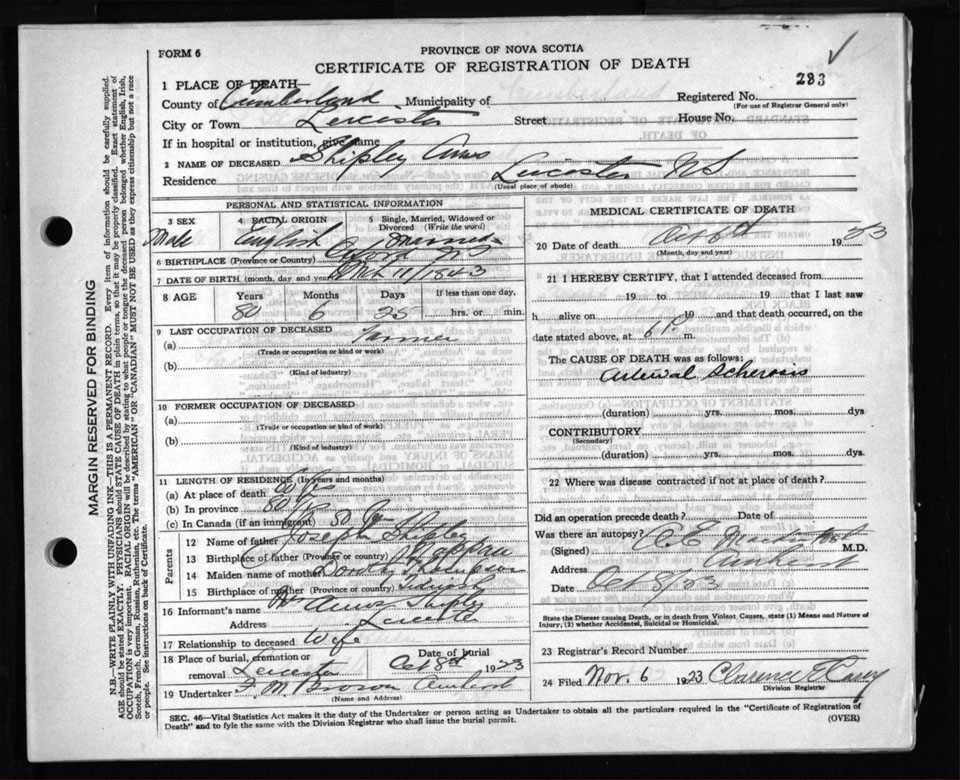 FORM 6
PROVINCE OF NOVA SCOTIA
CERTIFICATE OF REGISTRATION OF DEATH
283
1 PLACE OF DEATH
County of Cumberland Municipality of
Registered No.
(For use of Registrar General only)
City or Town Leicester Street House No.
If in hospital or institution, give name
2 NAME OF DECEASED Shipley Amos
Residence Leicester NS
(Usual place of abode)
PERSONAL AND STATISTICAL INFORMATION
3 SEX 4 RACIAL ORIGIN 5 Single, Married, Widowed or Divorced (Write the word)
Male English
6 BIRTHPLACE (Province or Country) NS
7 DATE OF BIRTH (month, day and year) Mch 11/1843
8 AGE Years Months Days If less than one day,
80 6 25 hrs. or min.
9 LAST OCCUPATION OF DECEASED
(a) Farmer
(Trade or occupation or kind or work)
(b)
(Kind of industry)
10 FORMER OCCUPATION OF DECEASED
(a)
(Trade or occupation or kind or work)
(b)
(Kind of industry)
11 LENGTH OF RESIDENCE (in Years and months)
(a) At place of death
(b) In province 80
(c) In Canada (if an immigrant) 80
Parents
12 Name of father Joseph Shipley
13 Birthplace of father (Province or Country) Nappan
14 Maiden name of mother Thompson
15 Birthplace of mother (Province or Country)
16 Informant's name Amos Shipley
Address Leicester
17 Relationship to deceased Wife
18 Place of burial, cremation or removal Leicester
Date of burial Oct 8th 1923
19 Undertaker F. M. Brown Amherst
(Name and Address)
MEDICAL CERTIFICATE OF DEATH
20 Date of death Oct 6th 1923
(Month, day and year)
21 I HEREBY CERTIFY, that I attended deceased from
19 to 19 that I last saw
h alive on 19 and that death occurred, on the
date stated above, at 6 P. m.
The CAUSE OF DEATH was as follows:
(duration) yrs. mos. dys
CONTRIBUTORY
(Secondary)
(duration) yrs. mos. dys.
22 Where was disease contracted if not at place of death?
Did an operation precede death? Date of
Was there an autopsy?
(Signed) M.D.
Address Amherst
Date Oct 8/23
State the Disease causing Death, or in death from Violent Causes, state (1) Means and Nature of Injury, (2) whether Accidental, Suicidal or Homicidal.
23 Registrar's Record Number
24 Filed Nov. 6 1923 Clarence E Casey
Division Registrar
SEC. 46—Vital Statistics Act makes it the duty of the Undertaker or person acting as Undertaker to obtain all the particulars required in the "Certificate of Registration of
Death" and to fyle the same with the Division Registrar who shall issue the burial permit.
(OVER)
MARGIN RESERVED FOR BINDING
N.B.—WRITE PLAINLY WITH UNFADING INK—THIS IS A PERMANENT RECORD. Every item of information should be carefully supplied.
AGE should be stated EXACTLY. PHYSICIANS should STATE CAUSE OF DEATH in plain terms, so that it may be properly classified. Exact statement of
OCCUPATION is very important. RACIAL ORIGIN will be described by stating to what people or tongue the deceased person belonged whether English, Irish,
Scotch, French, German, Russian, Ruthenian, etc. The terms "AMERICAN" OR "CANADIAN" MUST NOT BE USED as they express citizenship but not a race
or people. See instructions on back of Certificate.